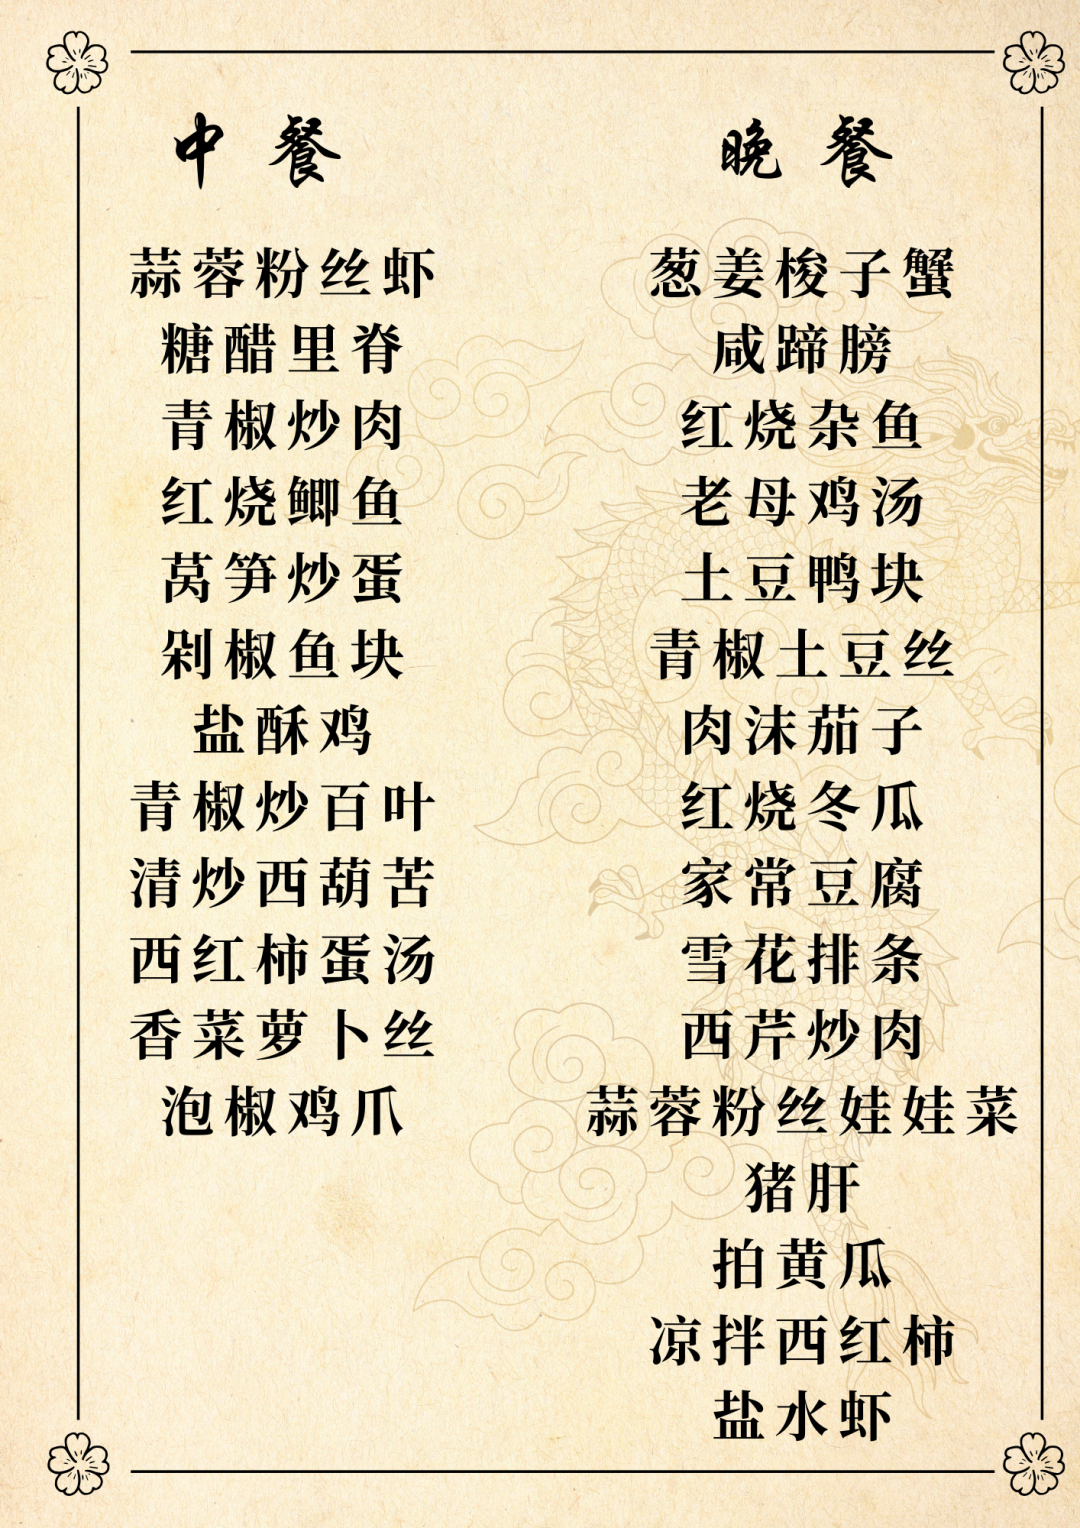 中餐
蒜蓉粉丝虾
糖醋里脊
青椒炒肉
红烧鲫鱼
莴笋炒蛋
剁椒鱼块
盐酥鸡
青椒炒百叶
清炒西葫苦
西红柿蛋汤
香菜萝卜丝
泡椒鸡爪
晚餐
葱姜梭子蟹
咸蹄膀
红烧杂鱼
老母鸡汤
土豆鸭块
青椒土豆丝
肉沫茄子
红烧冬瓜
家常豆腐
雪花排条
西芹炒肉
蒜蓉粉丝娃娃菜
猪肝
拍黄瓜
凉拌西红柿
盐水虾